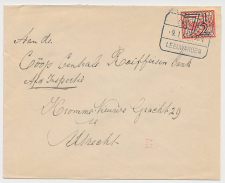 9.1
LEEUWARDEN
7½
Aan de
Coöp Centrale Raiffeisen Bank
Afd Inspectie
Kromme Nieuwe Gracht 29
Utrecht